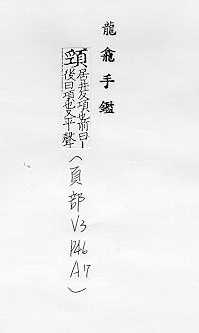 龍龕手鑑
頸居井反項也前曰丨
後曰項也又平聲
(頁部 V3 P46 A7)